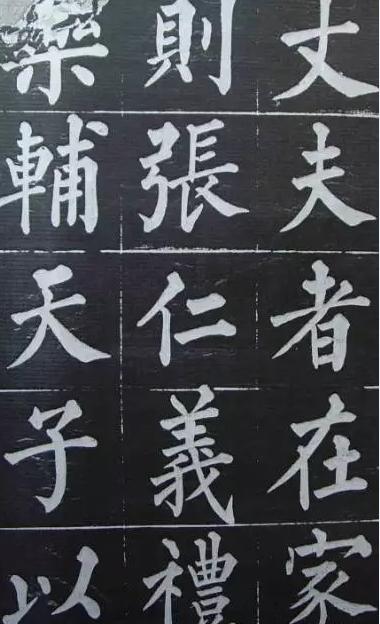 丈夫者在家
則張仁義禮
樂輔天子以